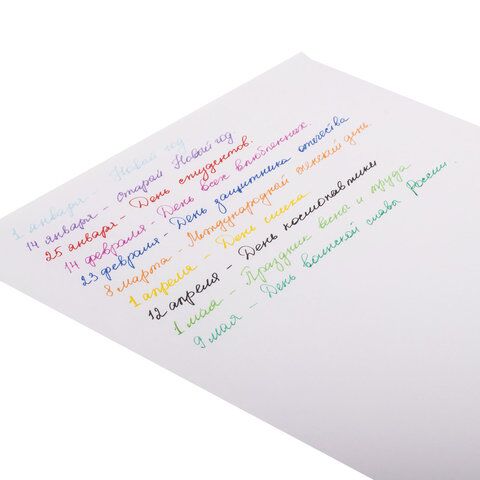 1 января - Новый год
14 января - Старый Новый год
25 января - День студентов.
14 февраля - День всех влюбленных.
23 февраля - День защитника отечества
8 марта - Международный женский день.
1 апреля - День смеха
12 апреля - День космонавтики
1 мая - Праздник весна и труда
9 мая - День воинской славы России.